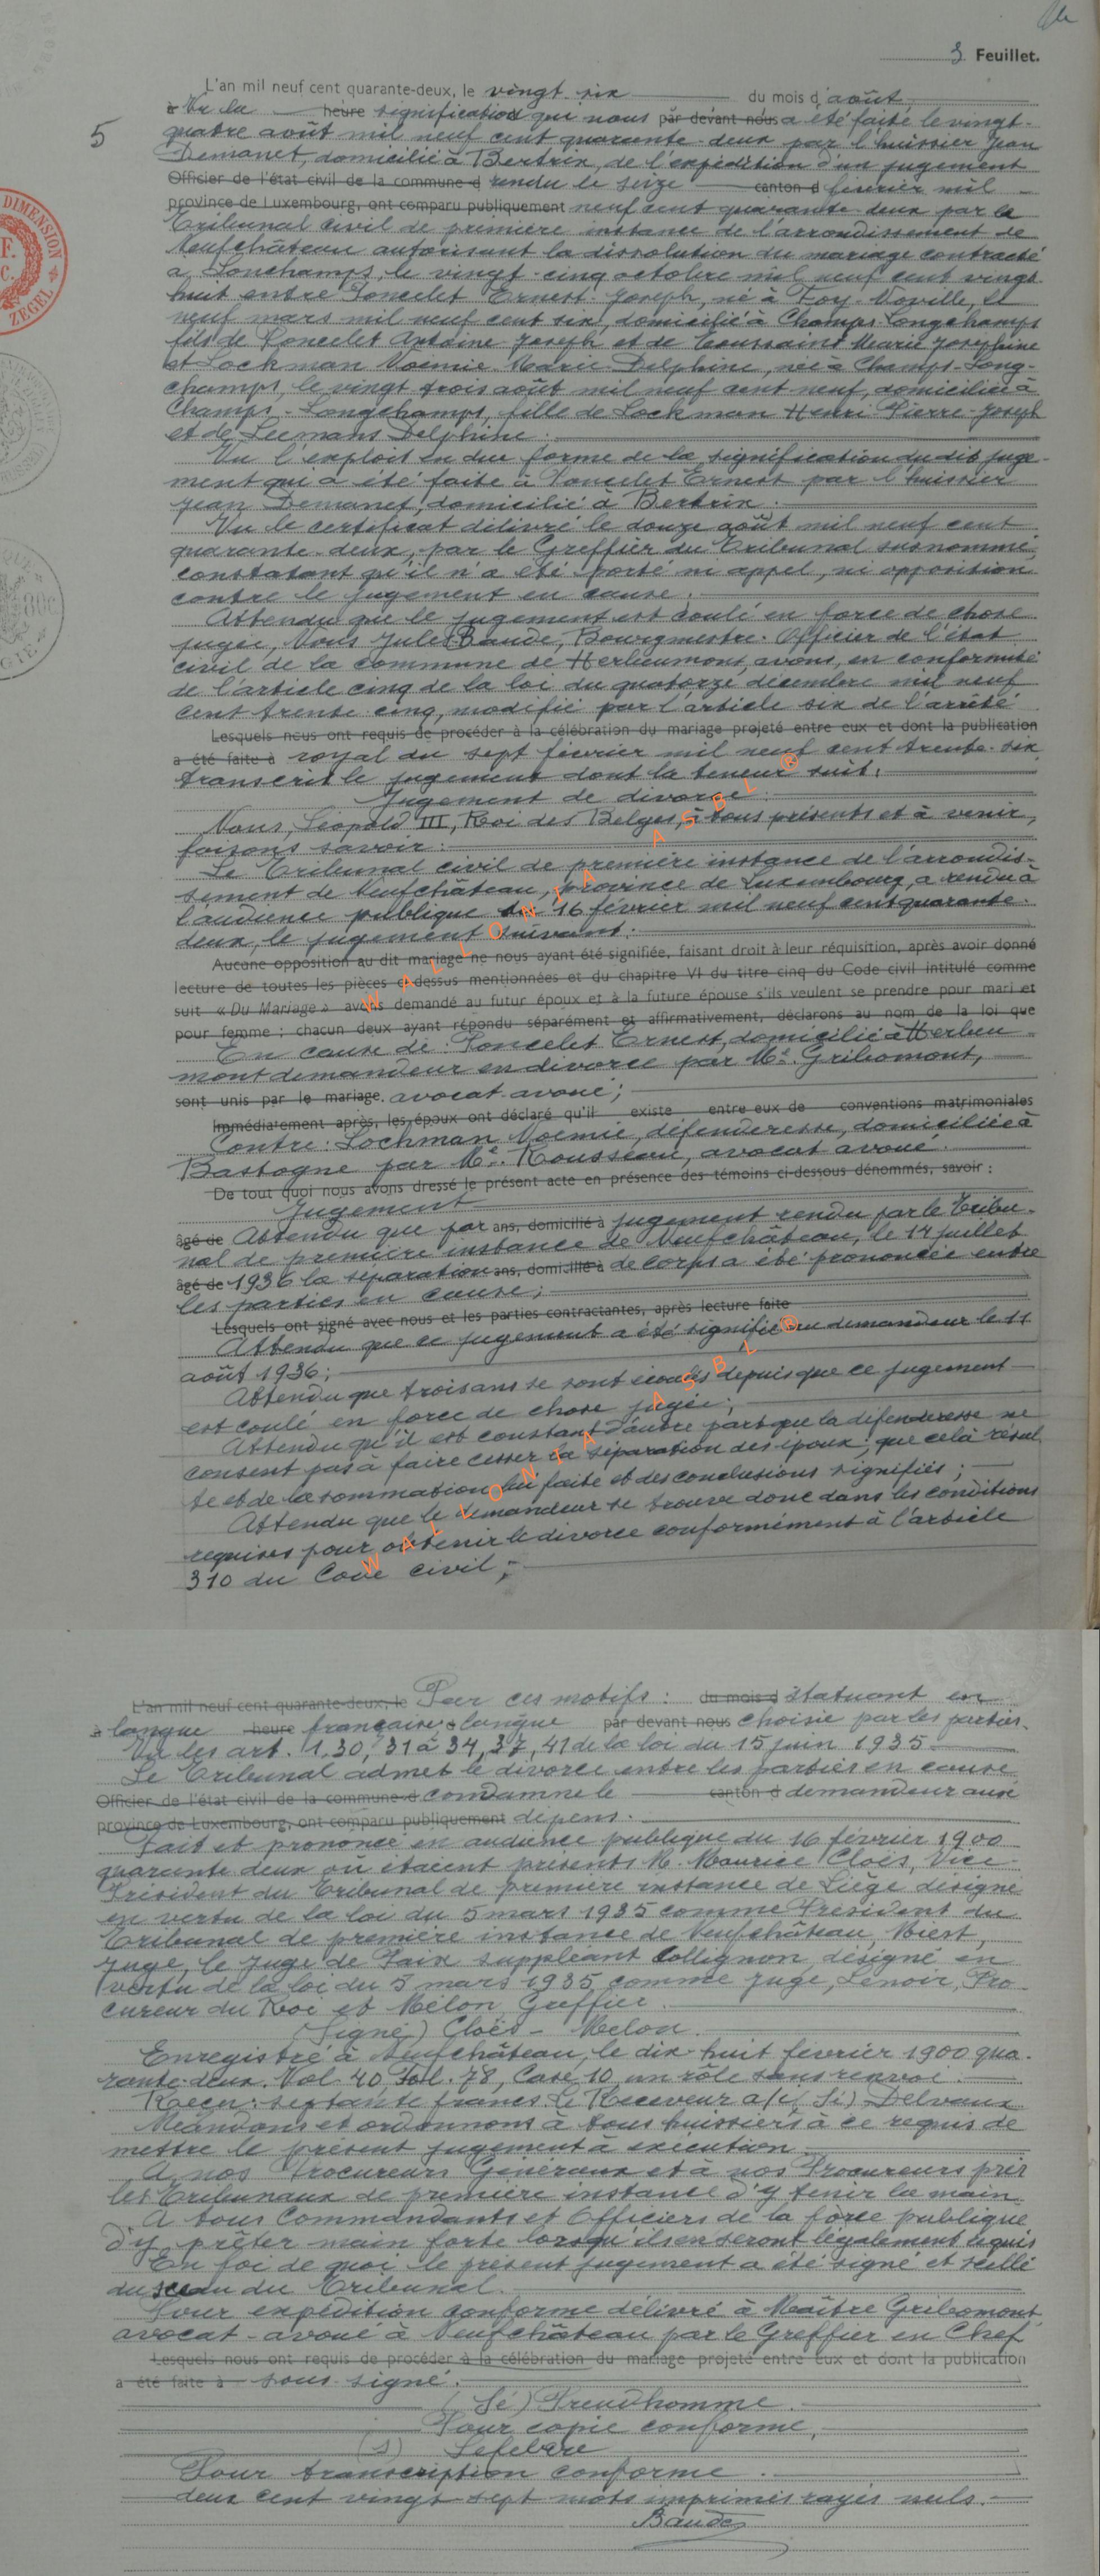 3 Feuillet.
L'an mil neuf cent quarante-deux, le vingt six du mois d'août,
à Vu la heure signification qui nous par devant nous a été faite le vingt-
5
quatre août mil neuf cent quarante deux par l'huissier Jean
Demanet, domicilié à Bertrix, de l'expédition d'un jugement
Officier de l'état civil de la commune d rendu le seize canton d février mil
province de Luxembourg, ont comparu publiquement neuf cent quarante deux par le
Tribunal civil de première instance de l'arrondissement de
Neufchâteau autorisant la dissolution du mariage contracté
a Lonchamps, le vingt-cinq octobre mil neuf cent vingt
huit entre Poncelet Ernest-Joseph, né à Foy-Noville, le
neuf mars mil neuf cent six, domicilié à Champs-Longchamps
fils de Poncelet Antoine Joseph et de Toussaint Marie Josephine
et Lockman Noémie-Marie-Delphine, née à Champs-Long-
champs, le vingt trois août mil neuf cent neuf, domiciliée à
Champs-Longchamps, fille de Lockman Henri-Pierre-Joseph
et de Leemans Delphine.
Vu l'exploit en due forme de la signification du dit juge-
ment qui a été faite à Poncelet Ernest par l'huissier
Jean Demanet, domicilié à Bertrix.
Vu le certificat délivré le douze août mil neuf cent
quarante-deux, par le Greffier du Tribunal susnommé,
constatant qu'il n'a été porté ni appel, ni opposition
contre le jugement en cause.
Attendu que le jugement est coulé en force de chose
jugée, Nous Jules Baude, Bourgmestre. Officier de l'état
civil de la commune de Herbeumont, avons, en conformité
de l'article cinq de la loi du quatorze décembre mil neuf
cent trente-cinq, modifié par l'article six de l'arrêté
Lesquels nous ont requis de procéder à la célébration du mariage projeté entre eux et dont la publication
a été faite à royal du sept février mil neuf cent trente-six
transcrit le jugement dont la teneur suit.
Jugement de divorce.
Nous, Léopold III, Roi des Belges, à tous présents et à venir,
faisons savoir:
Le Tribunal civil de première instance de l'arrondis-
sement de Neufchâteau, province de Luxembourg, a rendu à
l'audience publique du 16 février mil neuf cent quarante-
deux, le jugement suivant:
Aucune opposition au dit mariage ne nous ayant été signifiée, faisant droit à leur réquisition, après avoir donné
lecture de toutes les pièces ci-dessus mentionnées et du chapitre VI du titre cinq du Code civil intitulé comme
suit « Du Mariage » avons demandé au futur époux et à la future épouse s'ils veulent se prendre pour mari et
pour femme ; chacun deux ayant répondu séparément et affirmativement, déclarons au nom de la loi que
En cause de: Poncelet Ernest, domicilié à Herbeu-
mont demandeur en divorce par Me. Gribomont,
sont unis par le mariage. avocat-avoué;
Immédiatement après, les époux ont déclaré qu'il existe entre eux de conventions matrimoniales
Contre: Lochman Noémie, défenderesse, domiciliée à
Bastogne par Me. Rousseau, avocat avoué.
De tout quoi nous avons dressé le présent acte en présence des témoins ci-dessous dénommés, savoir :
Jugement
âgé de Attendu que par ans, domicilié à jugement rendu par le Tribu-
nal de première instance de Neufchâteau, le 14 juillet
âgé de 1936 la séparation ans, domicilié à de corps a été prononcée entre
les parties en cause;
Lesquels ont signé avec nous et les parties contractantes, après lecture faite
Attendu que ce jugement a été signifié au demandeur le 11
août 1936;
Attendu que trois ans se sont écoulés depuis que ce jugement
est coulé en force de chose jugée;
Attendu qu'il est constant d'autre part que la défenderesse ne
consent pas à faire cesser la séparation des époux; que celà résul
te et de la sommation lui faite et des conclusions signifiés;
Attendu que le demandeur se trouve donc dans les conditions
requises pour obtenir le divorce conformément à l'article
310 du Code civil;
WALLONIA ASBL®
WALLONIA ASBL®
L'an mil neuf cent quarante-deux, le Par ces motifs: du mois d statuant en
à langue heure française, langue par devant nous choisie par les parties.
Vu les art. 1,30, 31 à 34, 37, 41 de la loi du 15 juin 1935.
Le Tribunal admet le divorce entre les parties en cause
Officier de l'état civil de la commune d condamne le canton d demandeur aux
province de Luxembourg, ont comparu publiquement dépens.
Fait et prononcé en audience publique du 16 février 1900
quarante deux où étaient présents M. Maurice Cloës, Vice-
Président du Tribunal de première instance de Liège désigné
en vertu de la loi du 5 mars 1935 comme Président du
Tribunal de première instance de Neufchâteau, Biert,
juge, le juge de Paix suppléant Collignon, désigné en
vertu de la loi du 5 mars 1935, comme juge, Lenoir, Pro-
cureur du Roi et Melon, Greffier.
(Signé) Cloës - Melon.
Enregistré à Neufchâteau, le dix-huit février 1900 qua-
rante-deux. Vol. 40, Fol. 78, Case 10 un rôle sans renvoi.
Reçu: septante francs Le Receveur a/i (Sé) Delvaux
Mandons et ordonnons à tous huissiers à ce requis de
mettre le présent jugement à exécution.
A nos Procureurs Généraux et à nos Procureurs près
les Tribunaux de première instance d'y tenir la main.
A tous Commandants et Officiers de la force publique
d'y prêter main forte lorsqu'ils en seront légalement requis
En foi de quoi, le présent jugement a été signé et scellé
du sceau du Tribunal.
Pour expédition conforme délivré à Maître Gribomont
avocat-avoué à Neufchâteau par le Greffier en Chef
Lesquels nous ont requis de procéder à la célébration du mariage projeté entre eux et dont la publication
a été faite à sous signé.
(Sé) Preudhomme.
Pour copie conforme,
(s) Lefebvre
Pour transcription conforme.
deux cent vingt-sept mots imprimés rayés nuls.
Baude